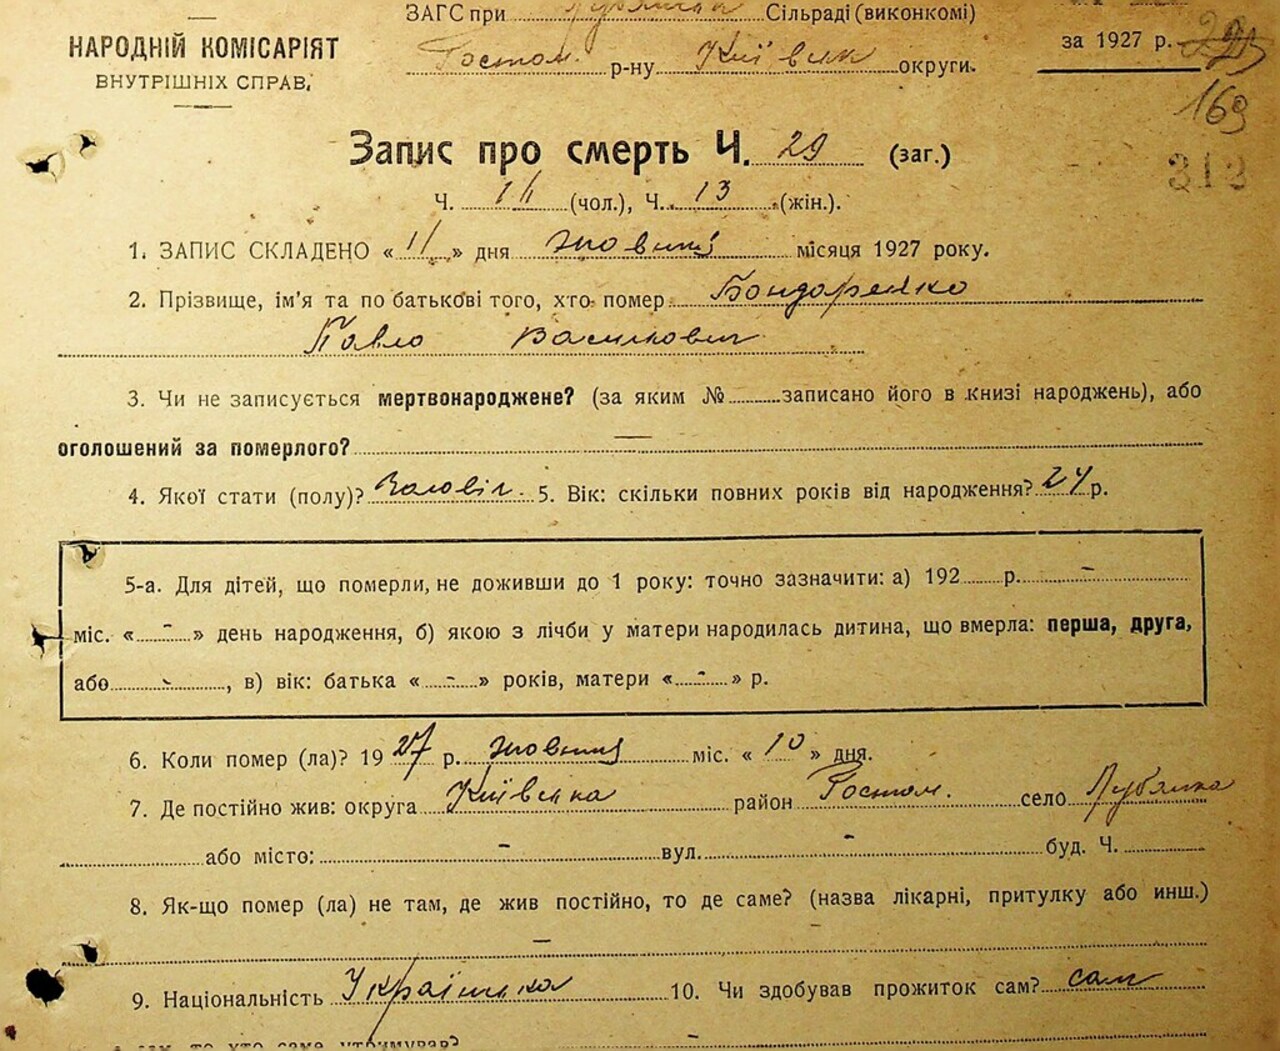 ЗАГС при Лубянська Сільраді (виконкомі)
НАРОДНІЙ КОМІСАРІЯТ
ВНУТРІШНІХ СПРАВ,
Гостом. р-ну Київськ округи.
за 1927 р.
169
313
Запис про смерть Ч. 29 (заг.)
Ч. (чол.), Ч. 13 (жін.).
1. ЗАПИС СКЛАДЕНО « 11 » дня жовтня місяця 1927 року.
2. Прізвище, ім'я та по батькові того, хто помер Бондаренко
Павло Василович
3. Чи не записується мертвонароджене? (за яким № записано його в книзі народжень), або
оголошений за померлого? —
4. Якої стати (полу)? Чоловіч. 5. Вік: скільки повних років від народження? 24 р.
5-а. Для дітей, що померли, не доживши до 1 року: точно зазначити: а) 192 р. -
міс. « - » день народження, б) якою з лічби у матери народилась дитина, що вмерла: перша, друга,
або - , в) вік: батька « - » років, матери « - » р.
6. Коли помер (ла)? 1927 р. жовтня міс. « 10 » дня.
7. Де постійно жив: округа Київська район Гостом. село Лубянка
або місто: - вул. - буд. Ч.
8. Як-що помер (ла) не там, де жив постійно, то де саме? (назва лікарні, притулку або инш.)
—
9. Національність Українська 10. Чи здобував прожиток сам? сам
то хто саме утримував? -